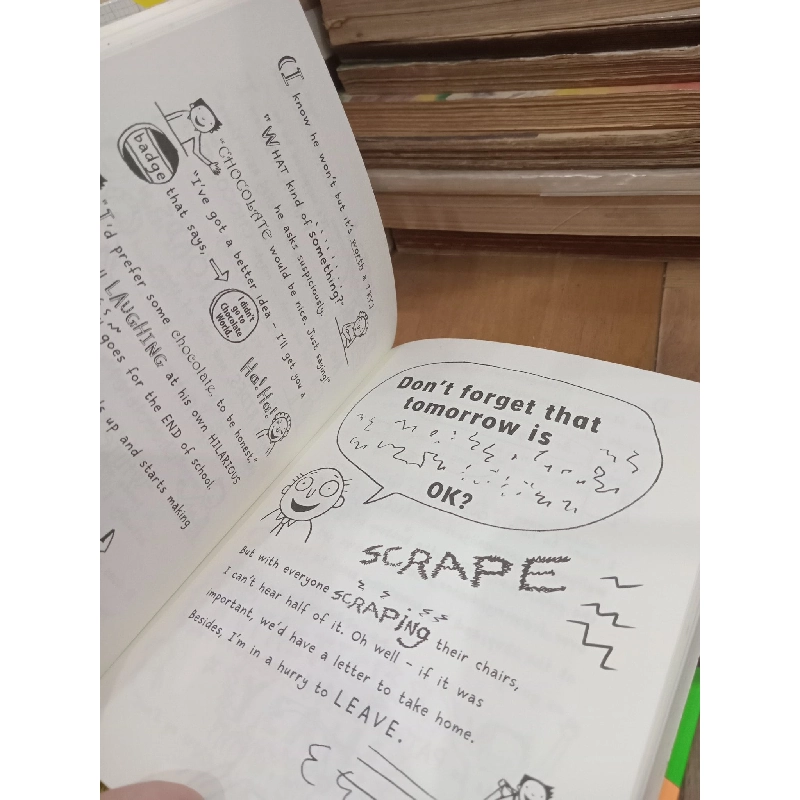 I know he won't but it's worth a TRY.)
"WHAT kind of something?"
he asks suspiciously.
"CHOCOLATE would be nice. Just saying"
"I've got a better idea - I'll get you a
badge that says,
I didn't
go to
Chocolate
World.
Ha! Ha!
"I'd prefer some chocolate, to be honest."
LAUGHING at his own HILARIOUS
goes for the END of school.
up and starts making
Don't forget that
tomorrow is
OK?
SCRAPE
But with everyone SCRAPiNg their chairs,
I can't hear half of it. Oh well - if it was
important, we'd have a letter to take home.
Besides, I'm in a hurry to LEAVE.